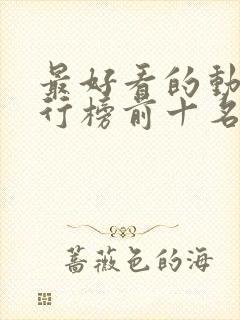 最好看的動
行榜前十名
薔薇色的海